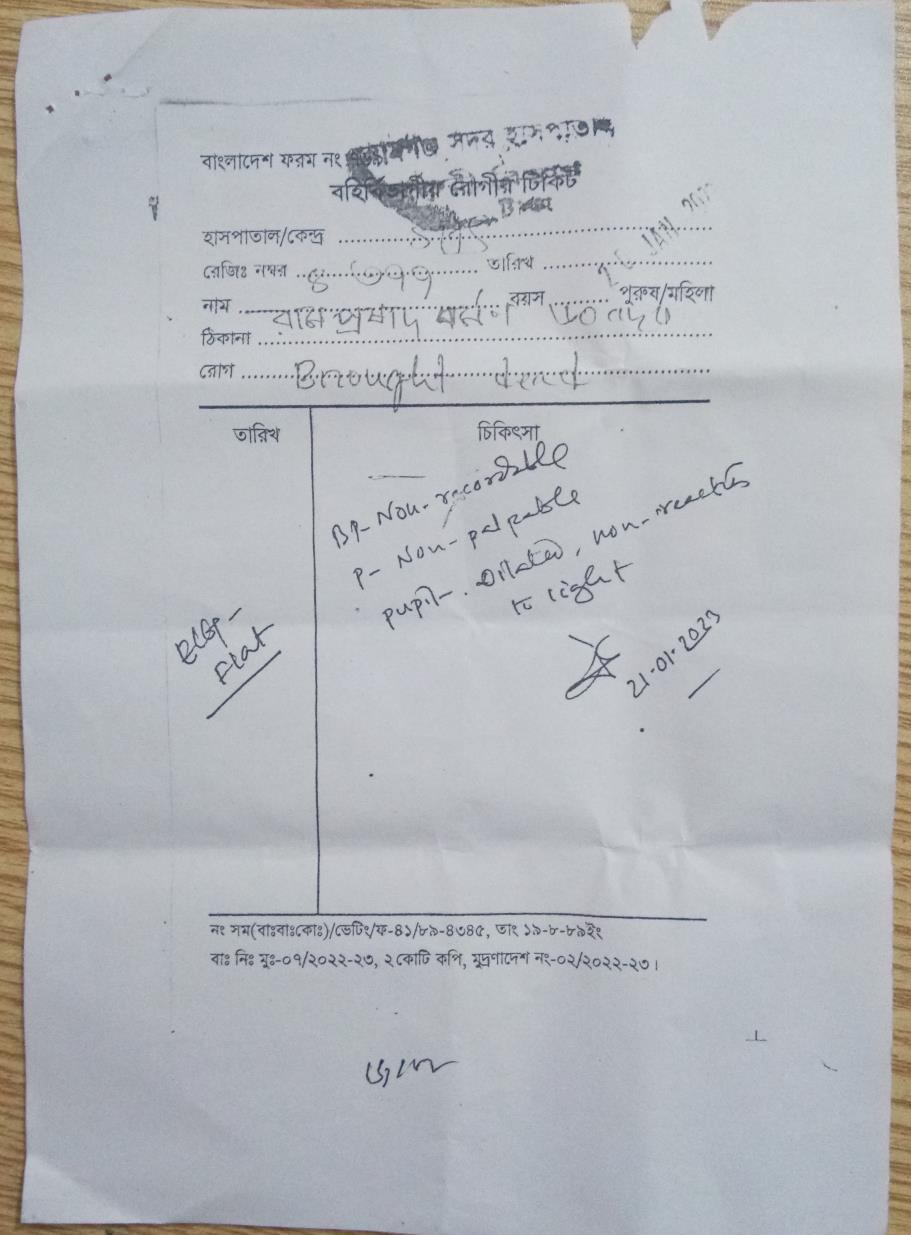 বাংলাদেশ ফরম নং সদর হাসপাতাল
বহির্বিভাগীয় রোগীর টিকিট
হাসপাতাল/কেন্দ্র
রেজিঃ নম্বর তারিখ JAN
নাম রাম প্রষাদ বর্মণ বয়স পুরুষ/মহিলা
ঠিকানা
রোগ Brought dead
তারিখ
চিকিৎসা
BP- Non-recordable
P- Non-palpable
pupil- Dilated, non-reactive
to light
ECG-
Flat
21-01-2023
নং সম(বাঃবাঃকোঃ)/ভেটিং/ফ-৪১/৮৯-৪৩৪৫, তাং ১৯-৮-৮৯ইং
বাঃ নিঃ মুঃ-০৭/২০২২-২৩, ২কোটি কপি, মুদ্রণাদেশ নং-০২/২০২২-২৩।